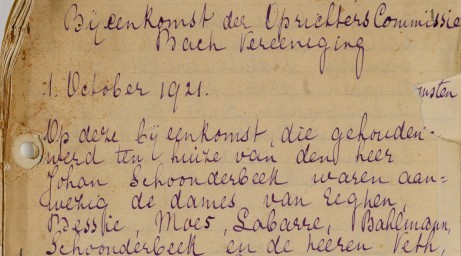 Bijeenkomst der Oprichters Commissie
Bach Vereeniging
1. October 1921.
Op deze bijeenkomst, die gehouden
werd ten huize van den heer
Johan Schoonderbeek waren aan=
wezig de dames van Eeghen,
Bessie, Moes, Labarre, Bahlmann,
Schoonderbeek en de heeren Veth,